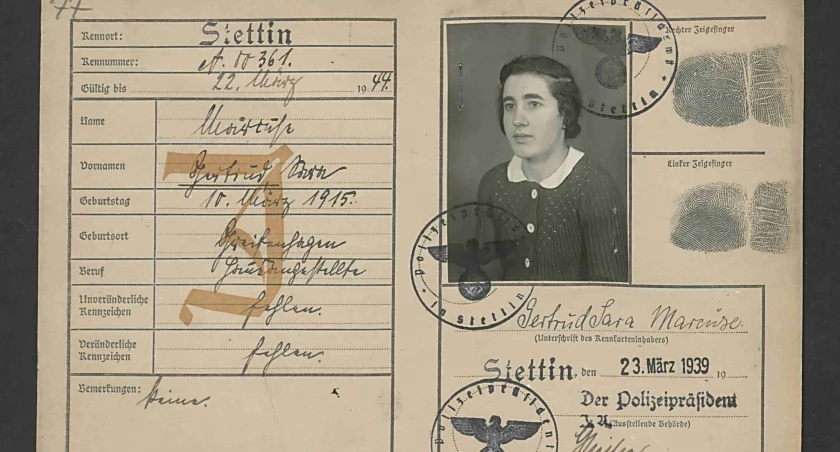 Kennort: Stettin
Kennummer: A. 00361.
Gültig bis 22. März 1944.
Name Marcuse
Vornamen Gertrud Sara
Geburtstag 10. März 1915.
Geburtsort Greifenhagen
Beruf Hausangestellte
Unveränderliche
Kennzeichen fehlen.
Veränderliche
Kennzeichen fehlen.
Bemerkungen: keine.
J
Polizeipräsident
Stettin
Rechter Zeigefinger
Linker Zeigefinger
Polizeipräsident
in Stettin
Gertrud Sara Marcuse.
(Unterschrift des Kennkarteninhabers)
Stettin, den 23. März 1939 19
Der Polizeipräsident
I. A.
(Ausstellende Behörde)
Polizeipräsident